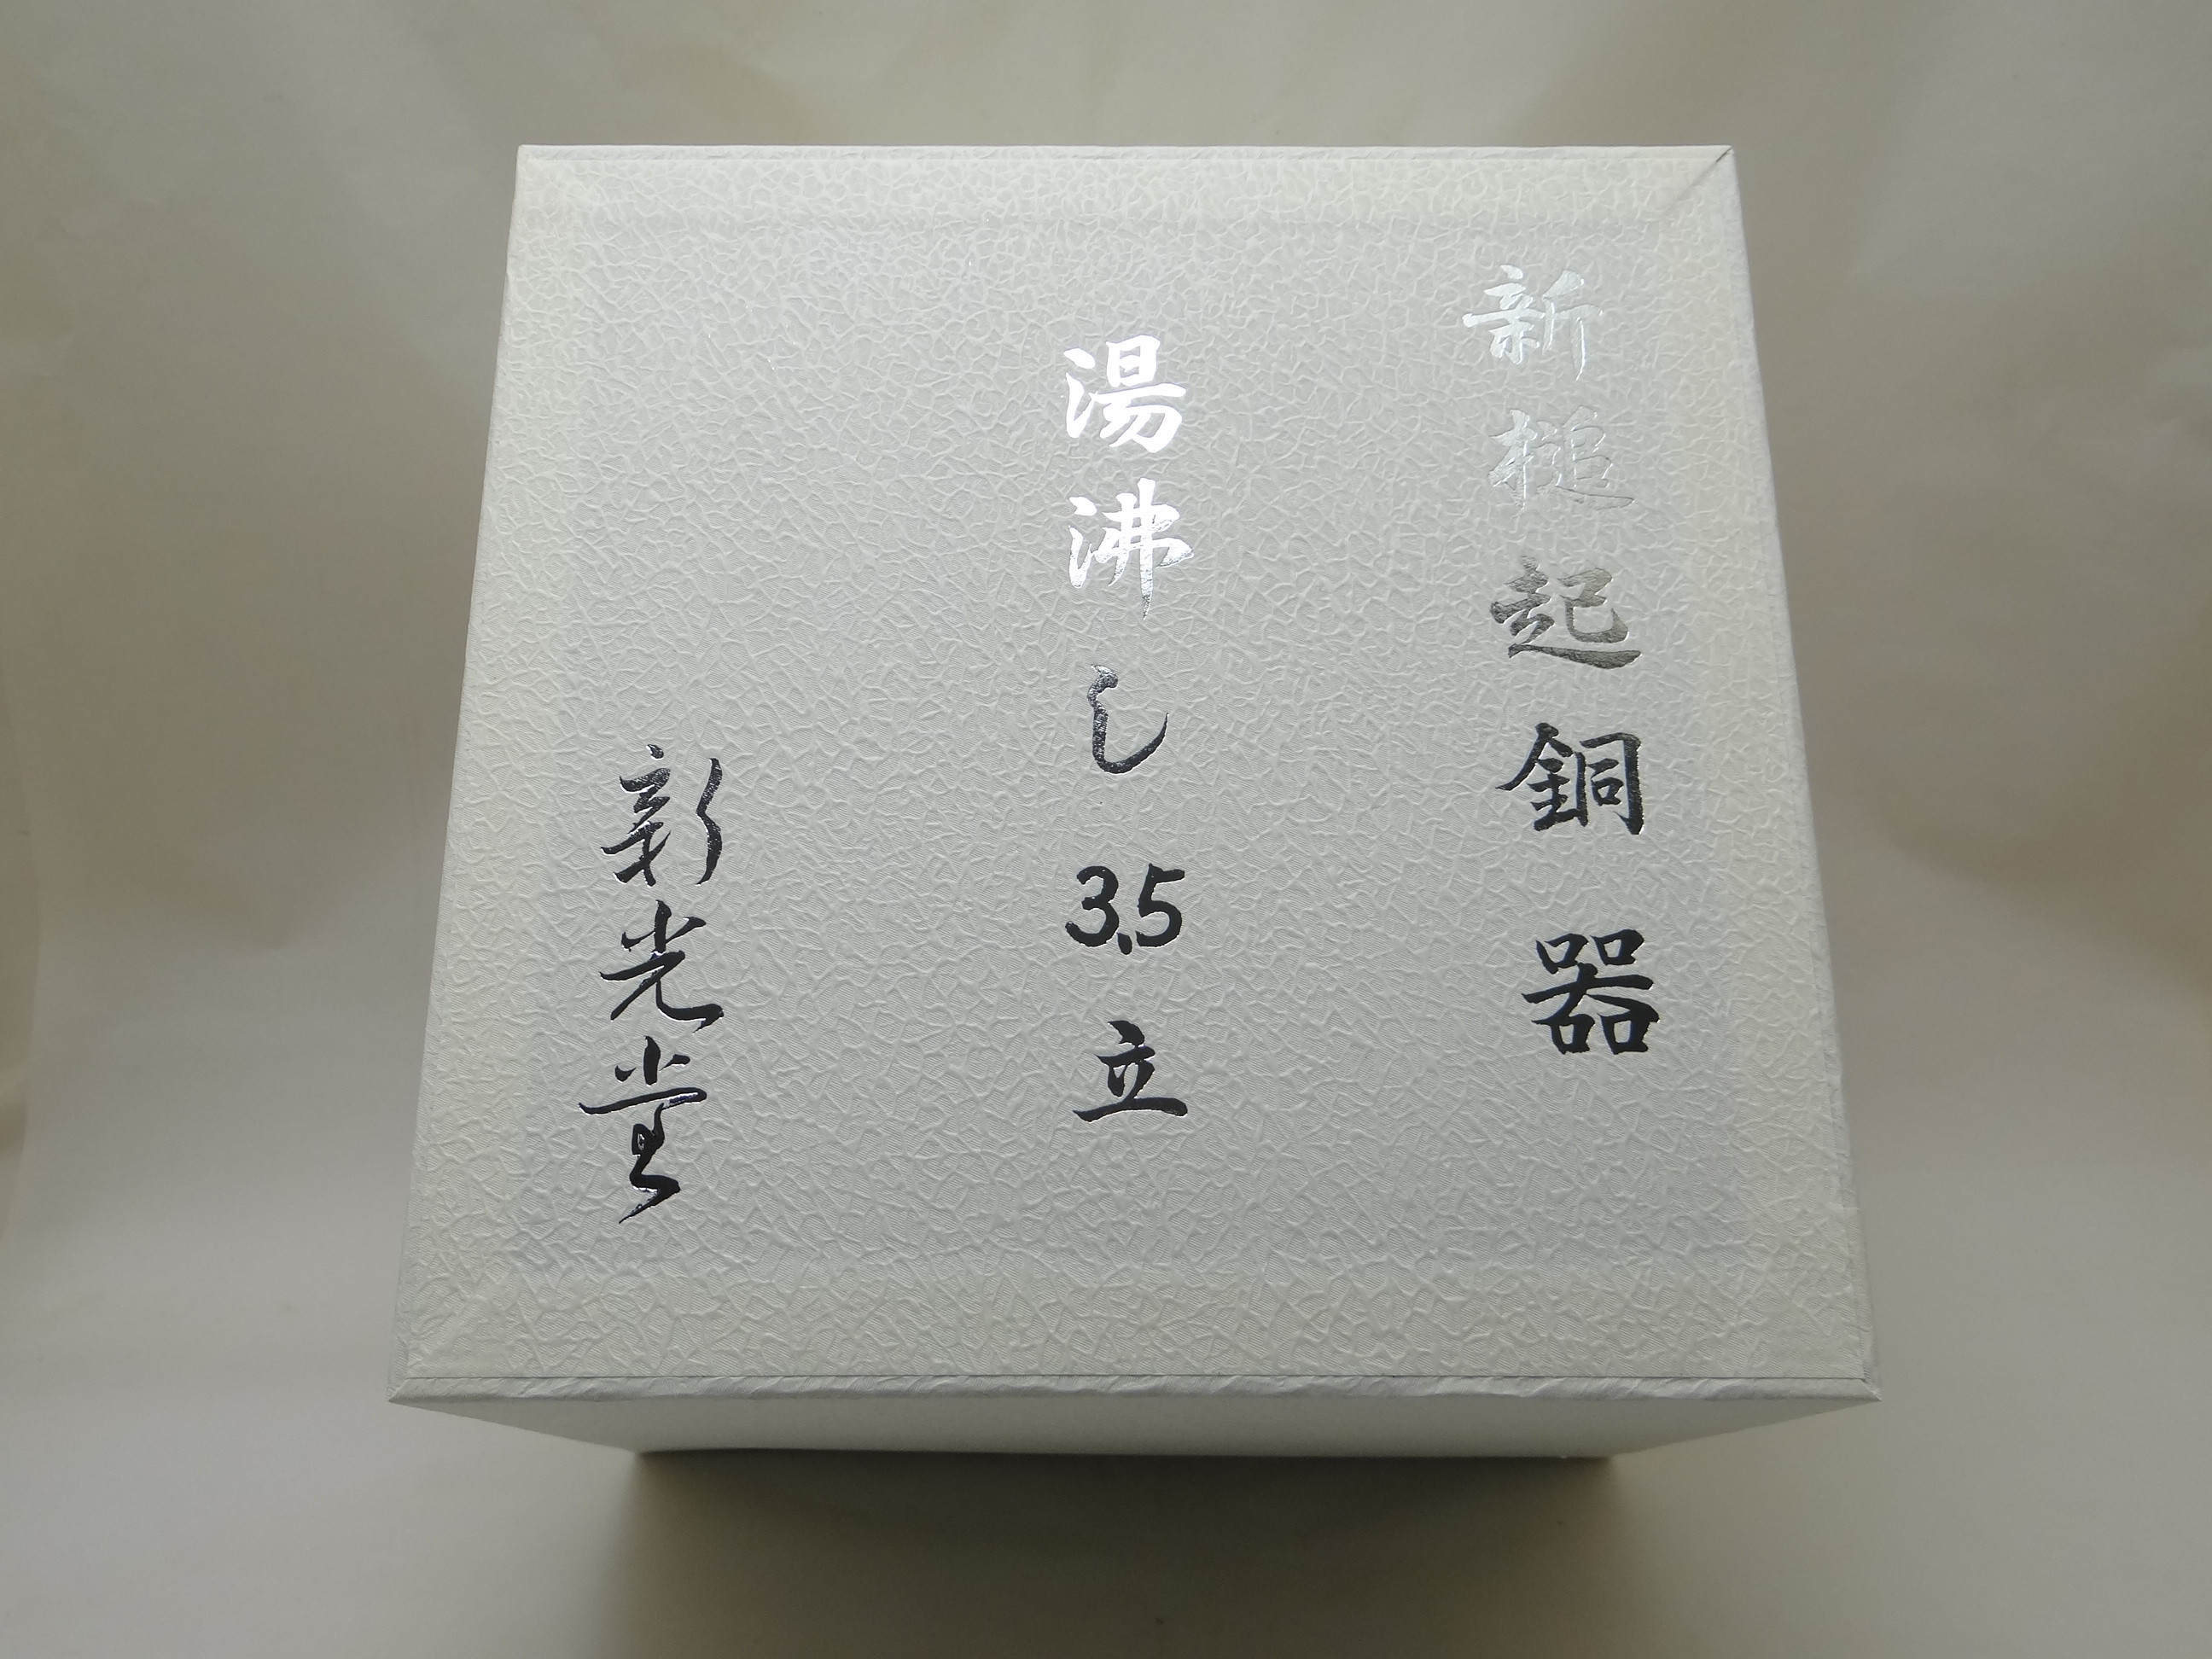 新鎚起銅器
湯沸し3.5立
新光堂